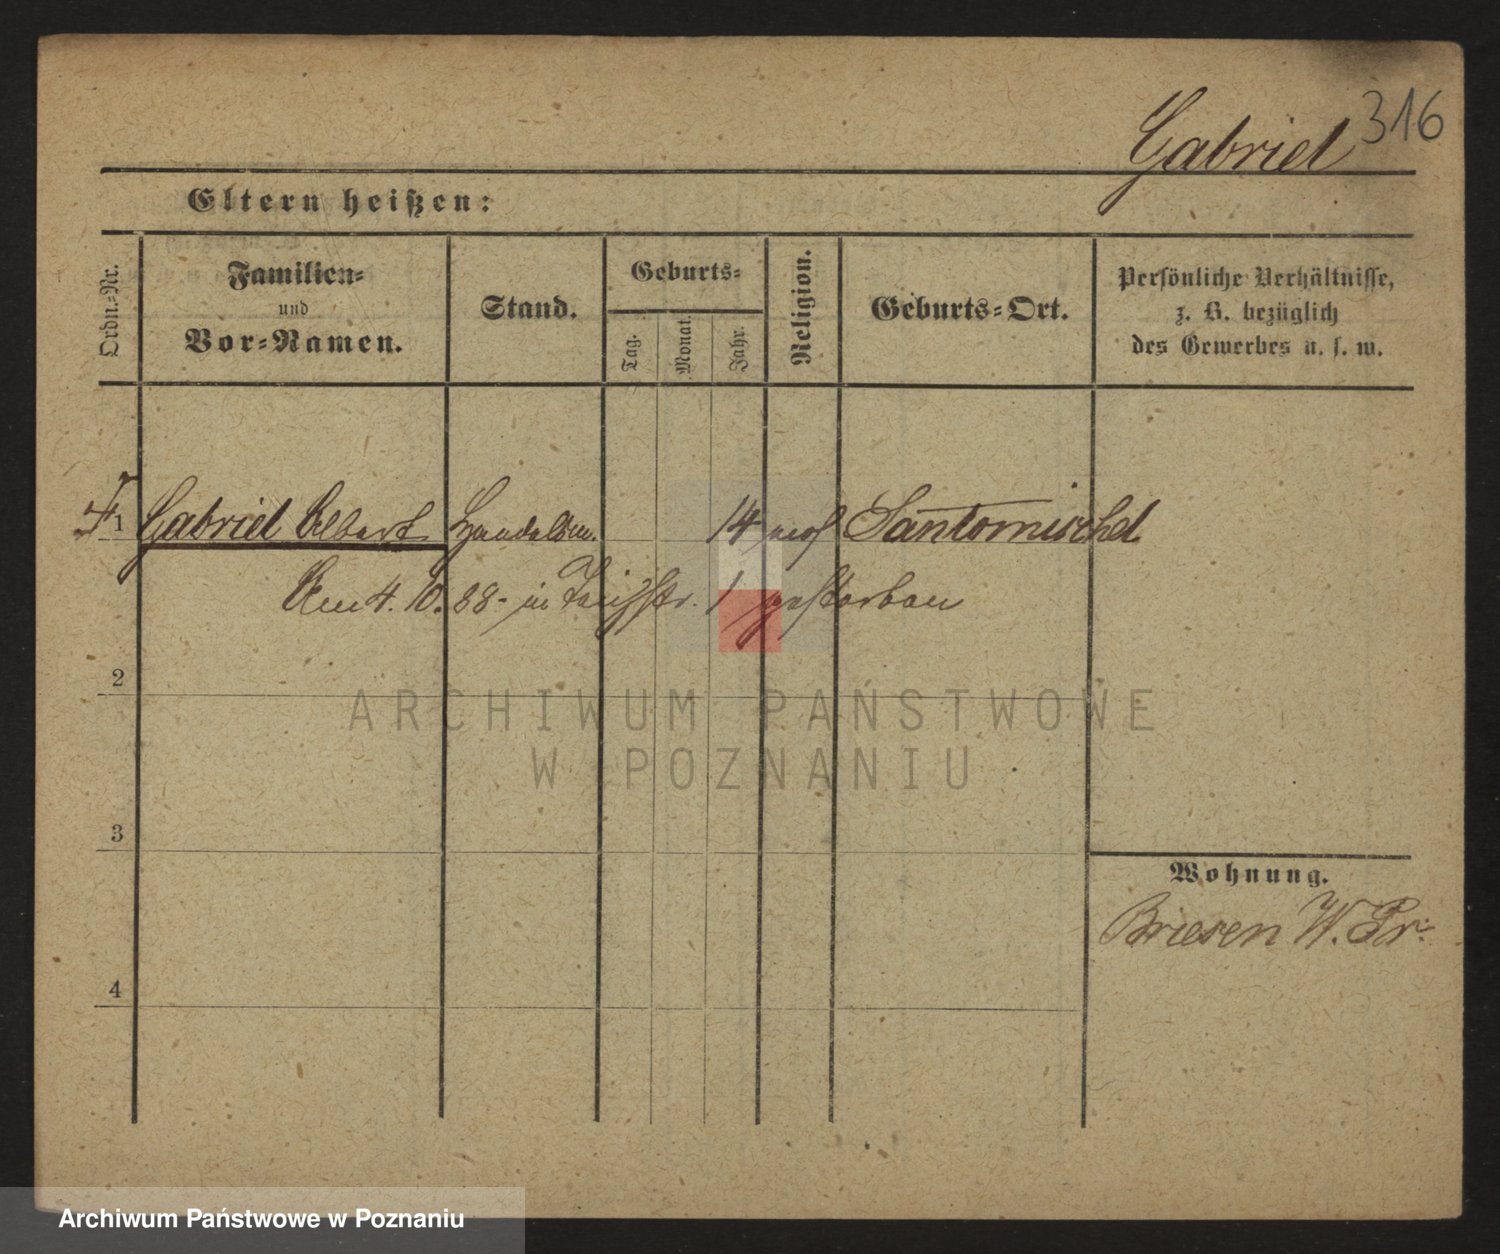 Gabriel 316
Eltern heißen:
Ordn.-Nr.
Familien-
und
Vor-Namen.
Stand.
Geburts-
Tag.
Monat.
Jahr.
Religion.
Geburts-Ort.
Persönliche Verhältnisse,
z. B. bezüglich
des Gewerbes u. s. w.
1 Gabriel Albert Handelsm. 14 mos Santomischel
Am 4. 10. 88 - in Teichstr. 1 gestorben
2
3
Wohnung.
Briesen W. Pr.
4
ARCHIWUM PAŃSTWOWE
W POZNANIU
Archiwum Państwowe w Poznaniu